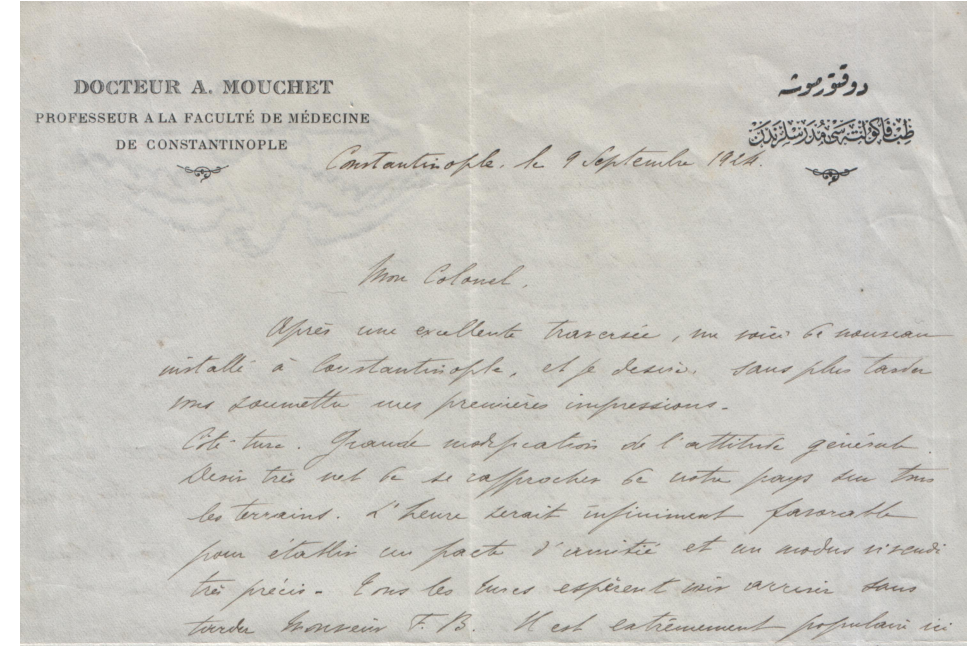 DOCTEUR A. MOUCHET
PROFESSEUR A LA FACULTÉ DE MÉDECINE
DE CONSTANTINOPLE
دوقتور موشه
طب فاكولته سى مدرسلرندن
Constantinople, le 9 Septembre 1924.
Mon Colonel,
Après une excellente traversée, me voici de nouveau
installé à Constantinople, et je desire, sans plus tarder
vous soumettre mes premières impressions.
Côté turc. Grande modification de l'attitude générale.
Desir très net de se rapprocher de notre pays sur tous
les terrains. L'heure serait infiniment favorable
pour établir un pacte d'amitié et un modus vivendi
très précis. Tous les turcs espèrent voir arriver sans
tarder Monsieur F. B. Il est extrêmement populaire ici